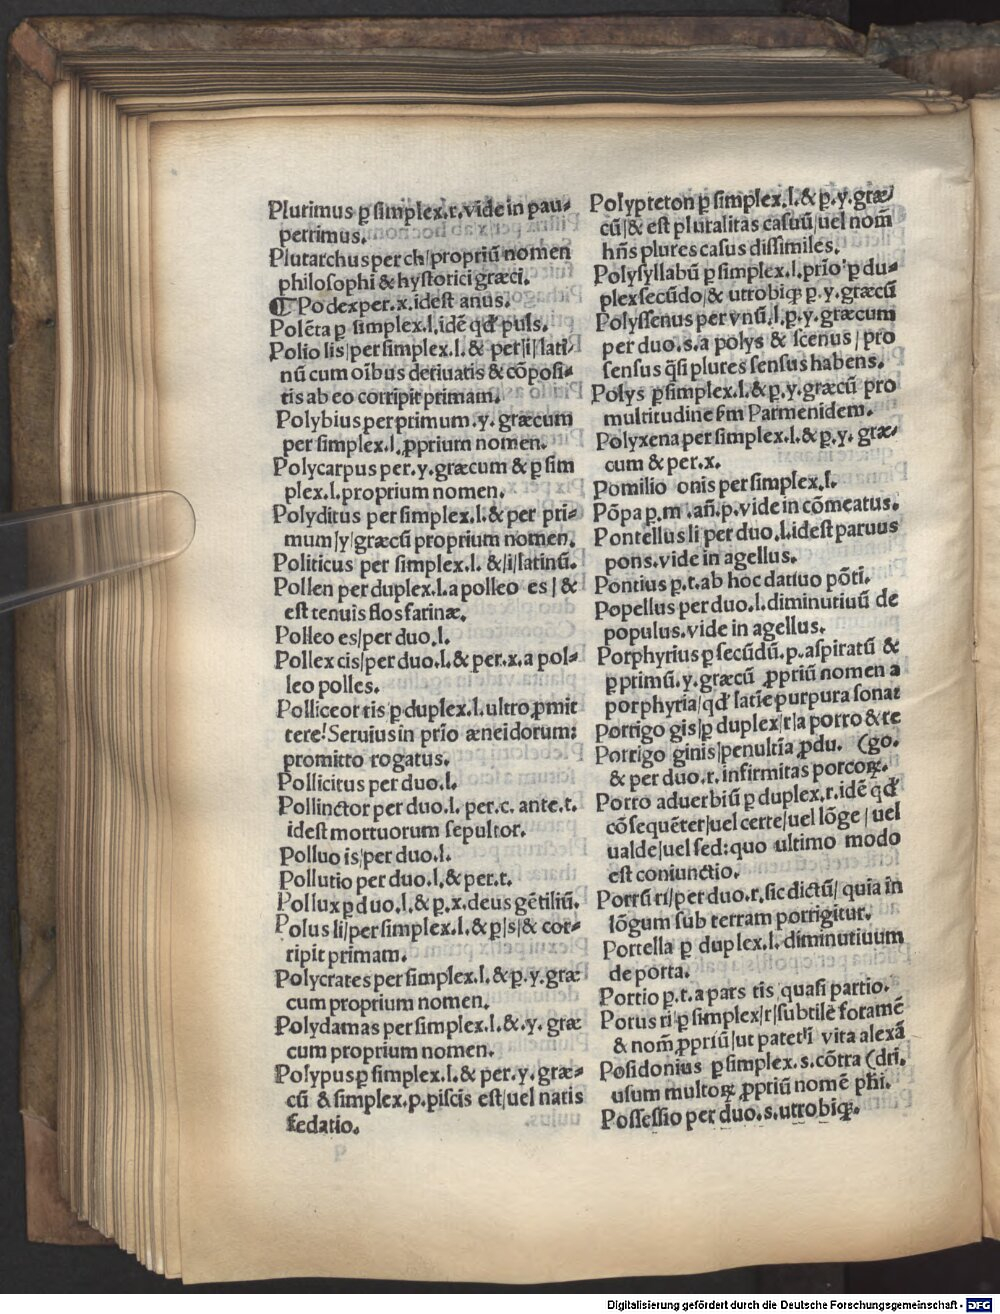 Plurimus ꝑ simplex.r.vide in pau⸗
perrimus.
Plutarchus per ch/propriũ nomen
philosophi & hystorici græci.
¶ Podex per.x.idest anus.
Polẽta ꝑ simplex.l.idẽ qđ puls.
Polio lis/per simplex.l.& per/i/lati⸗
nũ cum oĩbus deriuatis & cõposi⸗
tis ab eo corripit primam.
Polybius per primum.y.græcum
per simplex.l.ꝓprium nomen.
Polycarpus per.y.græcum & ꝑ sim
plex.l.proprium nomen.
Polyditus per simplex.l.& per pri⸗
mum/y/græcũ proprium nomen.
Politicus per simplex.l. &/i/latinũ.
Pollen per duplex.l.a polleo es/&
est tenuis flos farinæ.
Polleo es/per duo.l.
Pollex cis/per duo.l.& per.x.a pol⸗
leo polles.
Polliceor ris ꝑ duplex.l.ultro ꝓmit
tere!Seruius in prio æneidorum:
promitto rogatus.
Pollicitus per duo.l.
Pollinctor per duo.l. per.c. ante.t.
idest mortuorum sepultor.
Polluo is/per duo.l.
Pollutio per duo.l.& per.t.
Pollux ꝑ duo.l.& ꝑ.x.deus gẽtiliũ.
Polus li/per simplex.l.& ꝑ/s/& cor⸗
ripit primam.
Polycrates per simplex.l.& ꝑ.y.græ
cum proprium nomen.
Polydamas per simplex.l.&.y. græ
cum proprium nomen.
Polypus ꝑ simplex.l.& per.y.græ⸗
cũ & simplex.p.piscis est/uel naris
fedatio.
Polypteton ꝑ simplex.l.& ꝑ.y.græ⸗
cũ/& est pluralitas casuũ/uel nom̃
hñs plures casus dissimiles.
Polysyllabũ ꝑ simplex.l.prio' ꝑ du⸗
plex secũdo/& utrobiqꝫ ꝑ.y.græcũ
Polyssenus per vnũ.l.ꝑ.y.græcum
per duo.s.a polys & scenus/pro
sensus q̃si plures sensus habens.
Polys ꝑ simplex.l.& ꝑ.y.græcũ pro
multitudine ẜm Parmenidem.
Polyxena per simplex.l.& ꝑ.y. græ⸗
cum & per.x.
Pomilio onis per simplex.l.
Põpa ꝑ.m .añ.p.vide in cõmeatus.
Pontellus li per duo.l.idest paruus
pons.vide in agellus.
Pontius ꝑ.t.ab hoc datiuo põti.
Popellus per duo.l.diminutiuũ de
populus.vide in agellus.
Porphyrius ꝑ secũdũ.p.aspiratũ &
ꝑ primũ.y.græcũ ꝓpriũ nomen a
porphyria/qđ latĩe purpura sonat
Porrigo gis/ꝑ duplex/r/a porro & re
Porrigo ginis/penultĩa ꝓdu. (go.
& per duo.r.infirmitas porcoꝝ.
Porro aduerbiũ ꝑ duplex.r.idẽ qđ
cõsequẽter/uel certe/uel lõge/uel
ualde/uel sed:quo ultimo modo
est coniunctio.
Porrũ ri/per duo.r.sic dictũ/quia in
lõgum sub terram porrigitur.
Portella ꝑ duplex.l.diminutiuum
de porta.
Portio ꝑ.t.a pars tis quasi partio.
Porus ri/ꝑ simplex/r/subtile foramẽ
& nom̃ ꝓpriũ/ut patet ĩ vita alexã
Posidonius ꝑ simplex.s.cõtra (dri.
usum multoꝝ ꝓpriũ nomẽ phĩ.
Possessio per duo.s.utrobiqꝫ.
Digitalisierung gefördert durch die Deutsche Forschungsgemeinschaft - DFG